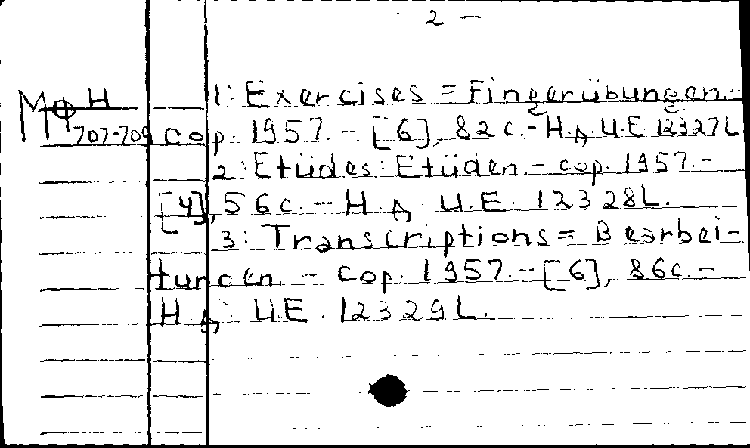 2 –
1: Exercises = Fingerübungen. –
cop. 1957. – [6], 82 c. – Н. Д. U.E. 12327L
2: Etüdes: Etüden. – cop. 1957. –
[4], 56 c. – Н. Д. U.E. 12328L.
3: Transcriptions = Bearbei-
tungen – cop. 1957. – [6], 86 c. –
Н. Д. U.E. 12329L.
Н
707-709